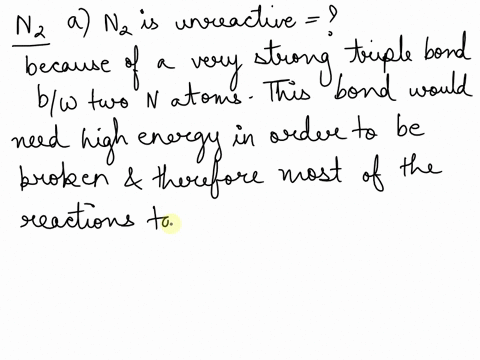 N₂ a) N₂ is unreactive = ?
because of a very strong triple bond
b/w two N atoms. This bond would
need high energy in order to be
broken & therefore most of the
reactions to